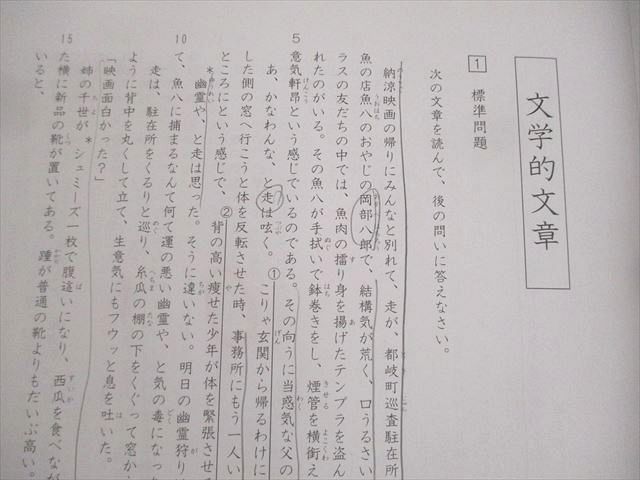 文学的文章
1 標準問題
次の文章を読んで、後の問いに答えなさい。
納涼映画の帰りにみんなと別れて、走が、都岐町巡査駐在所
魚の店魚八のおやじの岡部八郎で、結構気が荒く、口うるさい
ラスの友だちの中では、魚肉の擂り身を揚げたテンプラを盗ん
れたのがいる。その魚八が手拭いで鉢巻きをし、煙管を横銜え
5 意気軒昂という感じでいるのである。その向うに当惑気な父の
あ、かなわんな、と走は呟く。①こりゃ玄関から帰るわけに
した側の窓へ行こうと体を反転させた時、事務所にもう一人い
ところにという感じで、②背の高い痩せた少年が体を緊張させ
*幽霊や、と走は思った。そうに違いない。明日の幽霊狩り
10 て、魚八に捕まるなんて何て運の悪い幽霊や、と気の毒になっ
走は、駐在所をくるりと巡り、糸瓜の棚の下をくぐって窓か
ように背中を丸くして立て、生意気にもフウッと息を吐いた。
「映画面白かった?」
姉の千世が*シュミーズ一枚で腹這いになり、西瓜を食べなが
15 た横に新品の靴が置いてある。踵が普通の靴よりもだいぶ高い。
いると、